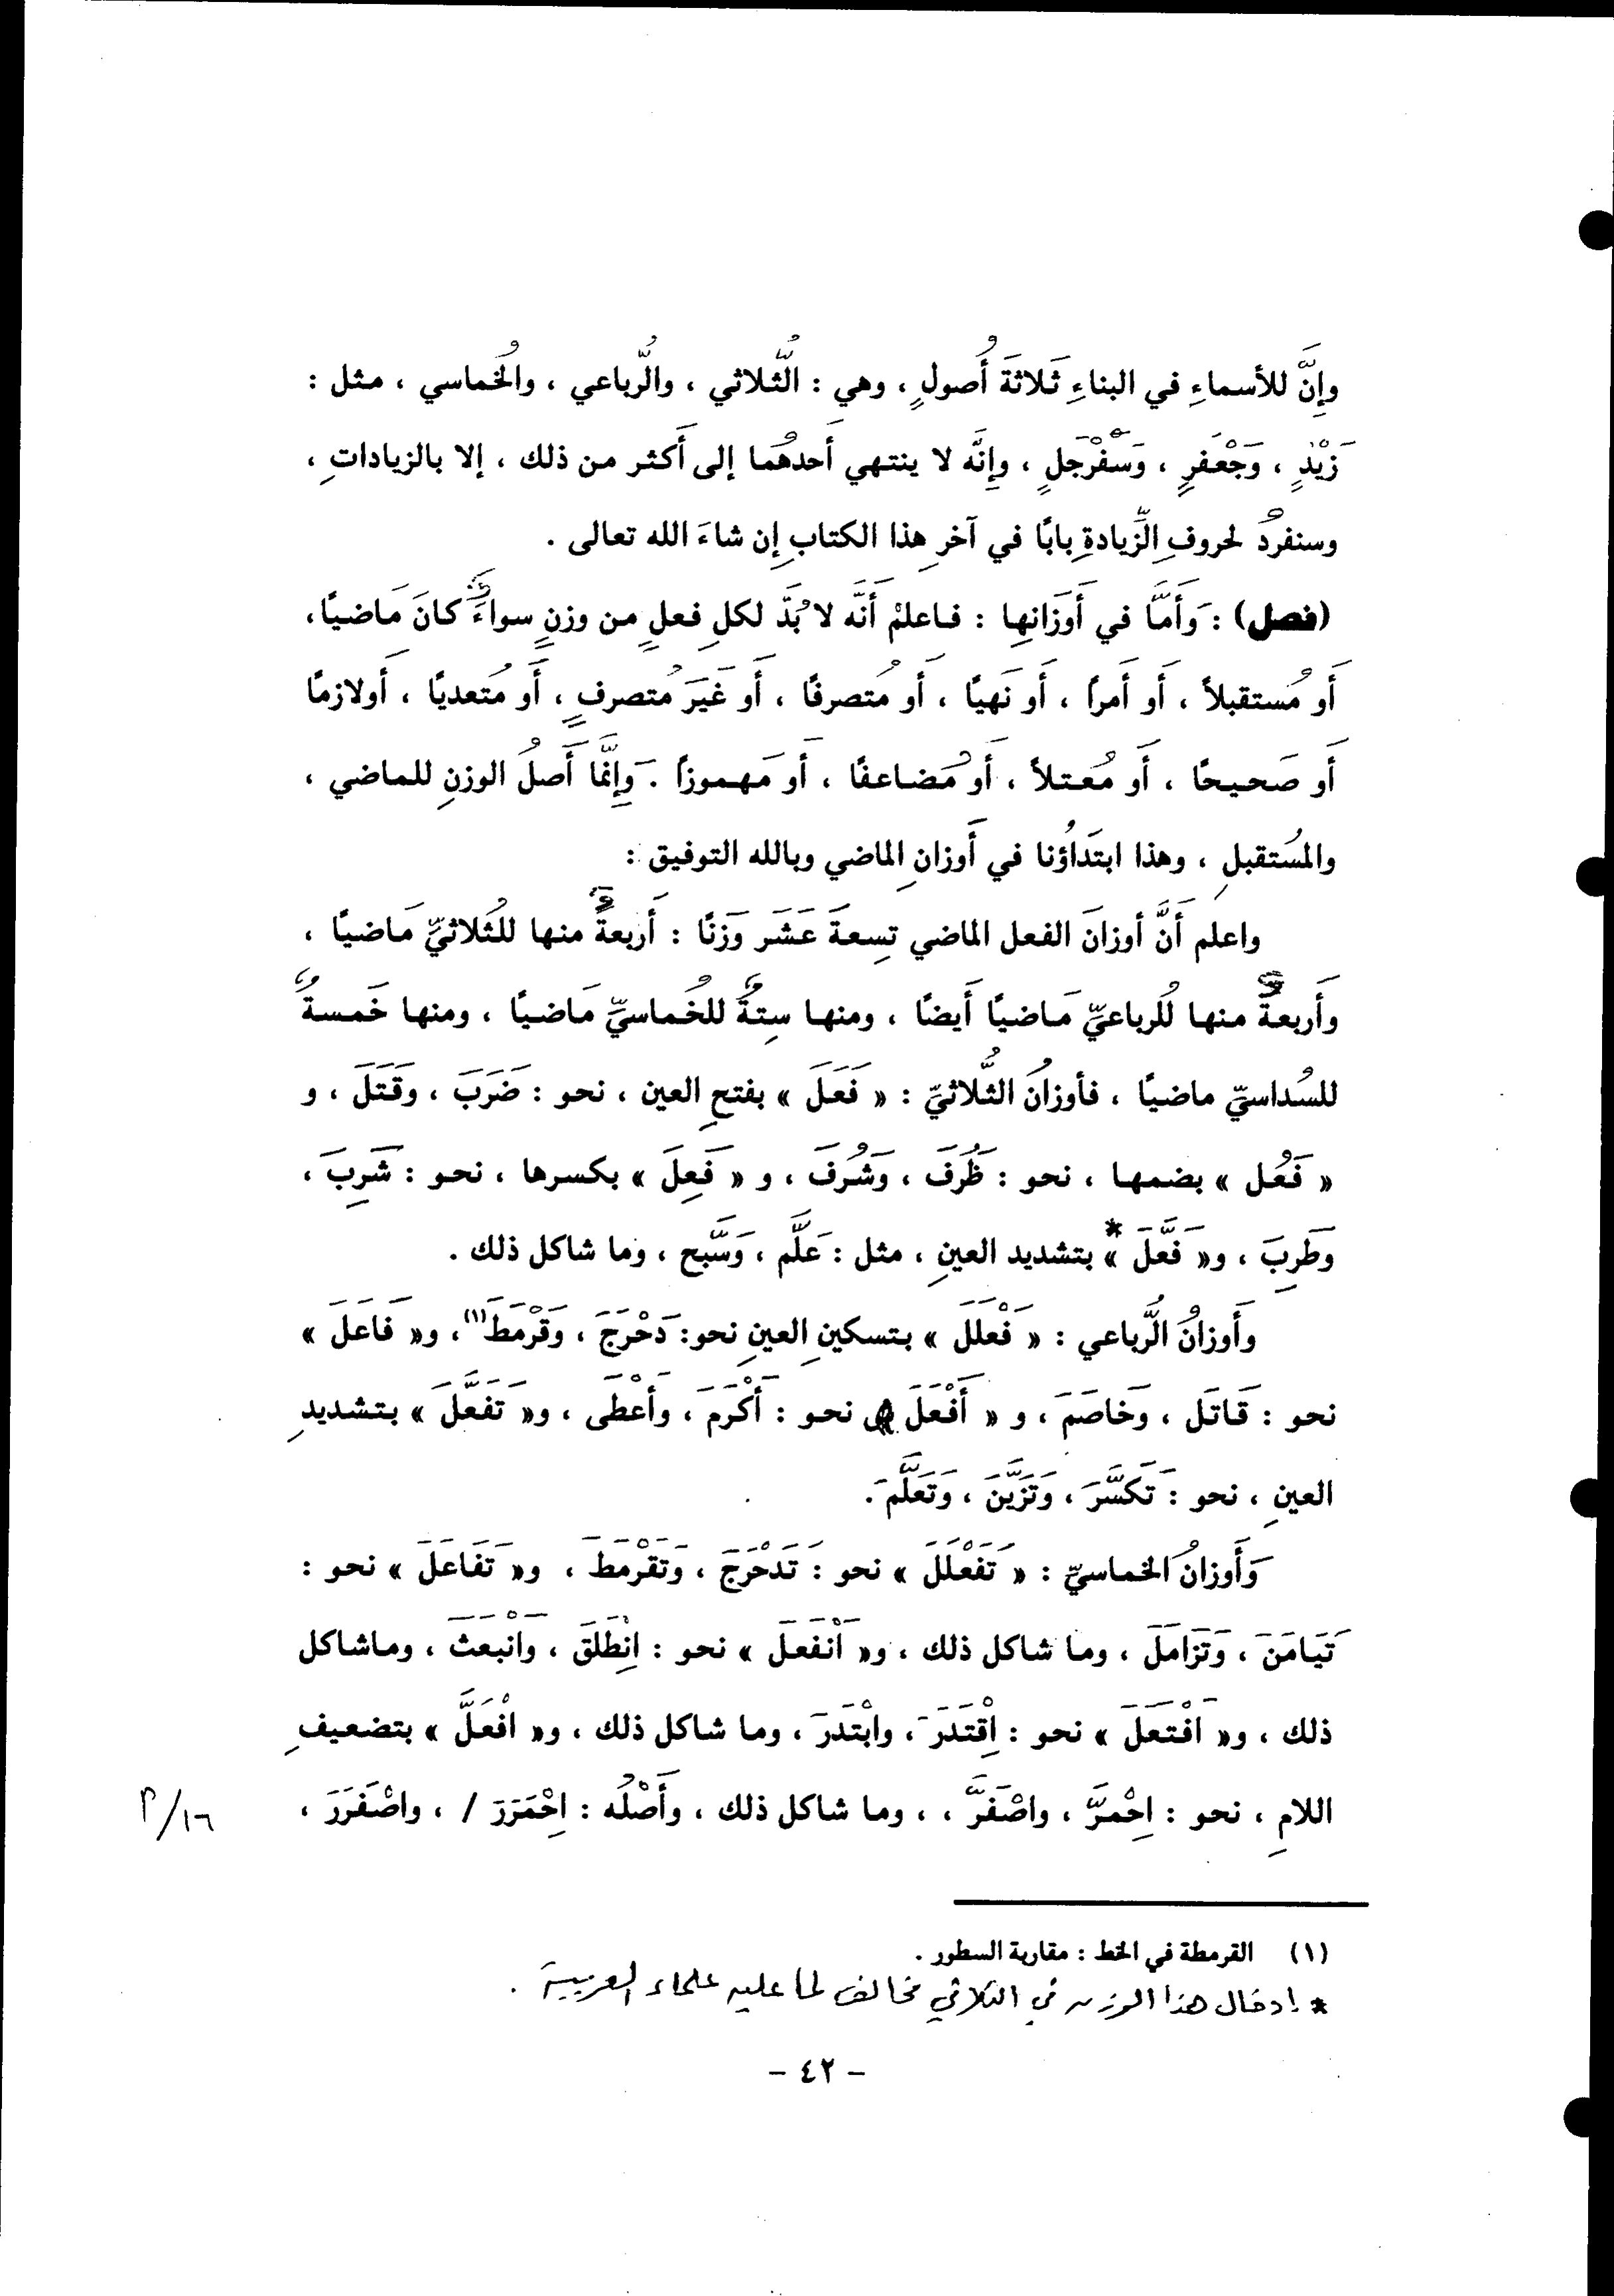 وإِنَّ للأسماءِ في البناءِ ثَلاثةَ أُصولٍ ، وهي : الثُّلاثي ، والرُّباعي ، والخُماسي ، مثل :
زَيْدٍ ، وَجَعْفَرٍ ، وَسَفَرْجَلٍ ، وإِنَّه لا ينتهي أَحدهُما إلى أَكثر من ذلك ، إلا بالزياداتِ ،
وسنفردُ لحروفِ الزِّيادةِ بابًا في آخرِ هذا الكتابِ إِن شاءَ الله تعالى .
(فصل) : وَأَمَّا في أَوزَانِها : فاعلمْ أَنَّه لا بُدَّ لكلِ فعلٍ من وزنٍ سواءٌ كانَ مَاضيًا،
أَو مُستقبلاً ، أَو أَمراً ، أَو نَهيًا ، أَو مُتصرفًا ، أَو غَيرَ مُتصرفٍ ، أَو مُتعديًا ، أَولازمًا
أَو صَحيحًا ، أَو مُعتلاً ، أَو مُضاعفًا ، أَو مَهموزاً . وَإِنَّما أَصلُ الوزنِ للماضي ،
والمُستقبلِ ، وهذا ابتدَاؤُنا في أَوزانِ الماضي وبالله التوفيق :
واعلم أَنَّ أوزانَ الفعل الماضي تِسعةَ عَشَر وَزنًا : أَربعةٌ منها للثُلاثيِّ مَاضيًا ،
وأَربعةٌ منها للُرباعيِّ مَاضيًا أَيضًا ، ومنها ستةٌ للخُماسيِّ مَاضيًا ، ومنها خَمسةٌ
للسُداسيِّ ماضيًا ، فأوزانُ الثُّلاثيِّ : « فَعَلَ » بفتحِ العين ، نحو : ضَرَبَ ، وقَتَلَ ، و
« فَعُل » بضمها ، نحو : ظَرُفَ ، وَشَرُفَ ، و « فَعِلَ » بكسرها ، نحو : شَرِبَ ،
وَطَرِبَ ، و« فَعَّلَ »* بتشديد العينِ ، مثل : عَلَّم ، وَسَّبح ، وما شاكل ذلك .
وأَوزانُ الرُّباعي : « فَعْلَلَ » بتسكينِ العينِ نحو: دَحْرَجَ ، وَقَرْمَطَ(١)، و« فَاعَلَ »
نحو : قَاتَل ، وَخاصَمَ ، و « أَفْعَلَ » نحو : أَكْرَمَ ، وأَعْطَى ، و« تَفَعَّلَ » بتشديدِ
العينِ ، نحو : تَكَسَّرَ ، وَتَزَيَّنَ ، وَتَعَلَّمَ .
وَأَوزانُ الخماسيِّ : « تَفَعْلَلَ » نحو : تَدَحْرَجَ ، وَتَقَرْمَطَ ، و« تَفَاعَلَ » نحو :
تَيَامَنَ ، وَتَزَامَلَ ، وما شاكل ذلك ، و« اَنْفَعَلَ » نحو : اِنْطَلَقَ ، وَاَنْبَعَثَ ، وماشاكل
ذلك ، و« اَفْتَعَلَ » نحو : اِقْتَدَرَ ، وابْتَدَرَ ، وما شاكل ذلك ، و« افْعَلَّ » بتضعيفِ
اللامِ ، نحو : اِحْمرَّ ، واصْفَرَّ ، ، وما شاكل ذلك ، وأَصْلُه : اِحْمَرَرَ / ، واصْفَرَرَ ،
١٦/م
(١) القرمطة في الخط : مقاربة السطور .
* إدخال هذا الوزن في الثلاثي مخالف لما عليه علماء العربية .
- ٤٢ -